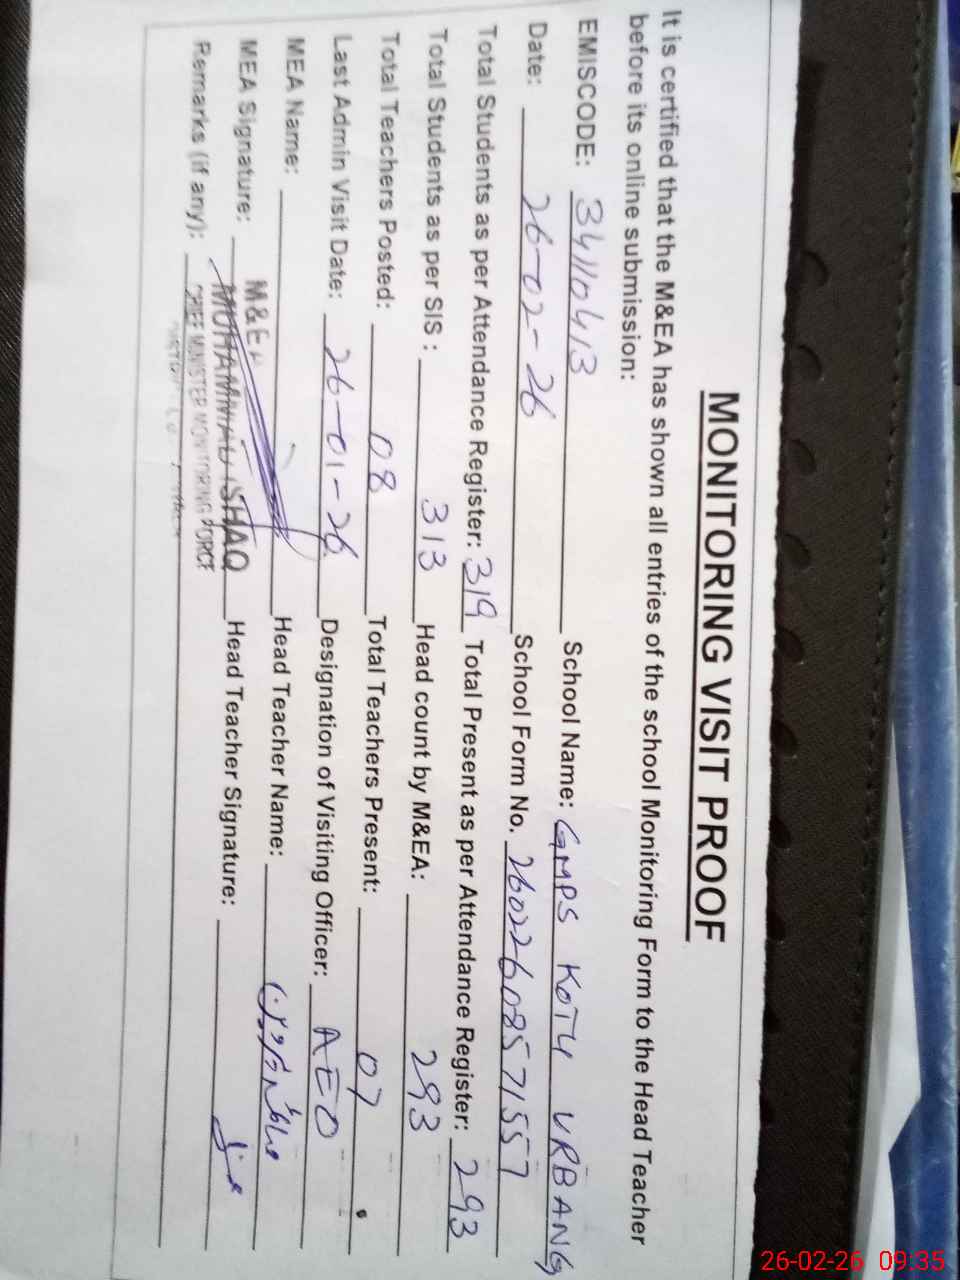 MONITORING VISIT PROOF
It is certified that the M&EA has shown all entries of the school Monitoring Form to the Head Teacher
before its online submission:
EMISCODE: 34110413 School Name: GMPS KOTLI URBANG
Date: 26-02-26 School Form No. 26022608571557
Total Students as per Attendance Register: 319 Total Present as per Attendance Register: 293
Total Students as per SIS : 313 Head count by M&EA: 293
Total Teachers Posted: 08 Total Teachers Present: 07
Last Admin Visit Date: 26-01-26 Designation of Visiting Officer: AEO
MEA Name: Head Teacher Name:
M&EA
MEA Signature: MUHAMMAD ISHAQ Head Teacher Signature:
Remarks (if any): CHIEF MINISTER MONITORING FORCE
26-02-26 09:35